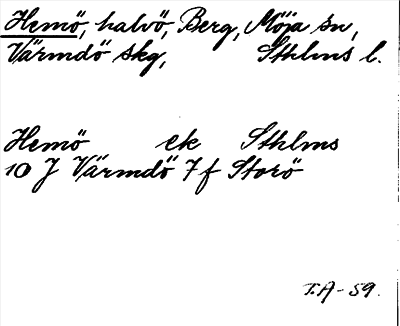 Hemö, halvö, Berg, Möja sn,
Värmdö skg, Sthlms l.
Hemö ek Sthlms
10 J Värmdö 7f Storö
T.A-59.